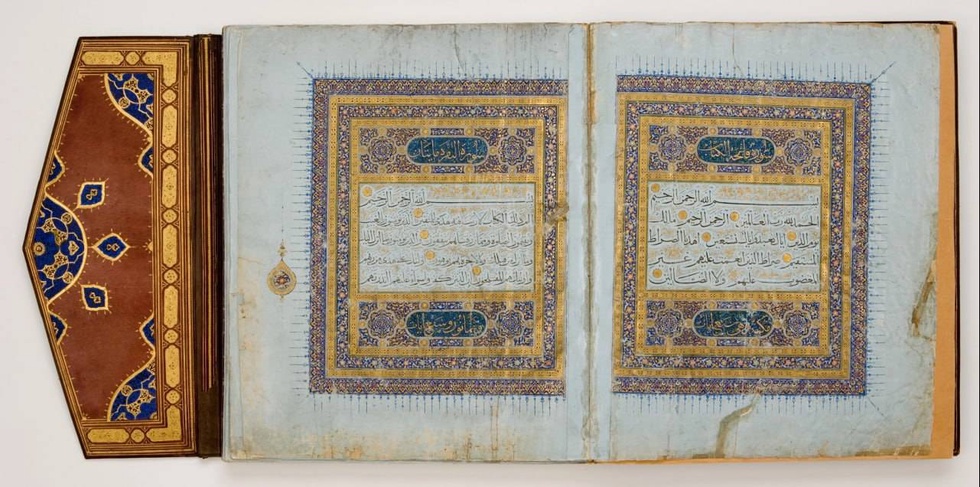 سورة فاتحة الكتاب
بسم الله الرحمن الرحيم
الحمد لله رب العالمين الرحمن الرحيم ملك
يوم الدين اياك نعبد واياك نستعين اهدنا الصراط
المستقيم صراط الذين انعمت عليهم غير
المغضوب عليهم ولا الضالين
مكية وهي سبع ايات
سورة البقرة مايتان
بسم الله الرحمن الرحيم
الم ذلك الكتاب لا ريب فيه هدى للمتقين الذين يومنون بالغيب
ويقيمون الصلوة ومما رزقناهم ينفقون والذين يومنون بما انزل اليك
وما انزل من قبلك وبالاخرة هم يوقنون اولئك على هدى من ربهم
واولئك هم المفلحون ان الذين كفروا سواء عليهم اانذرتهم